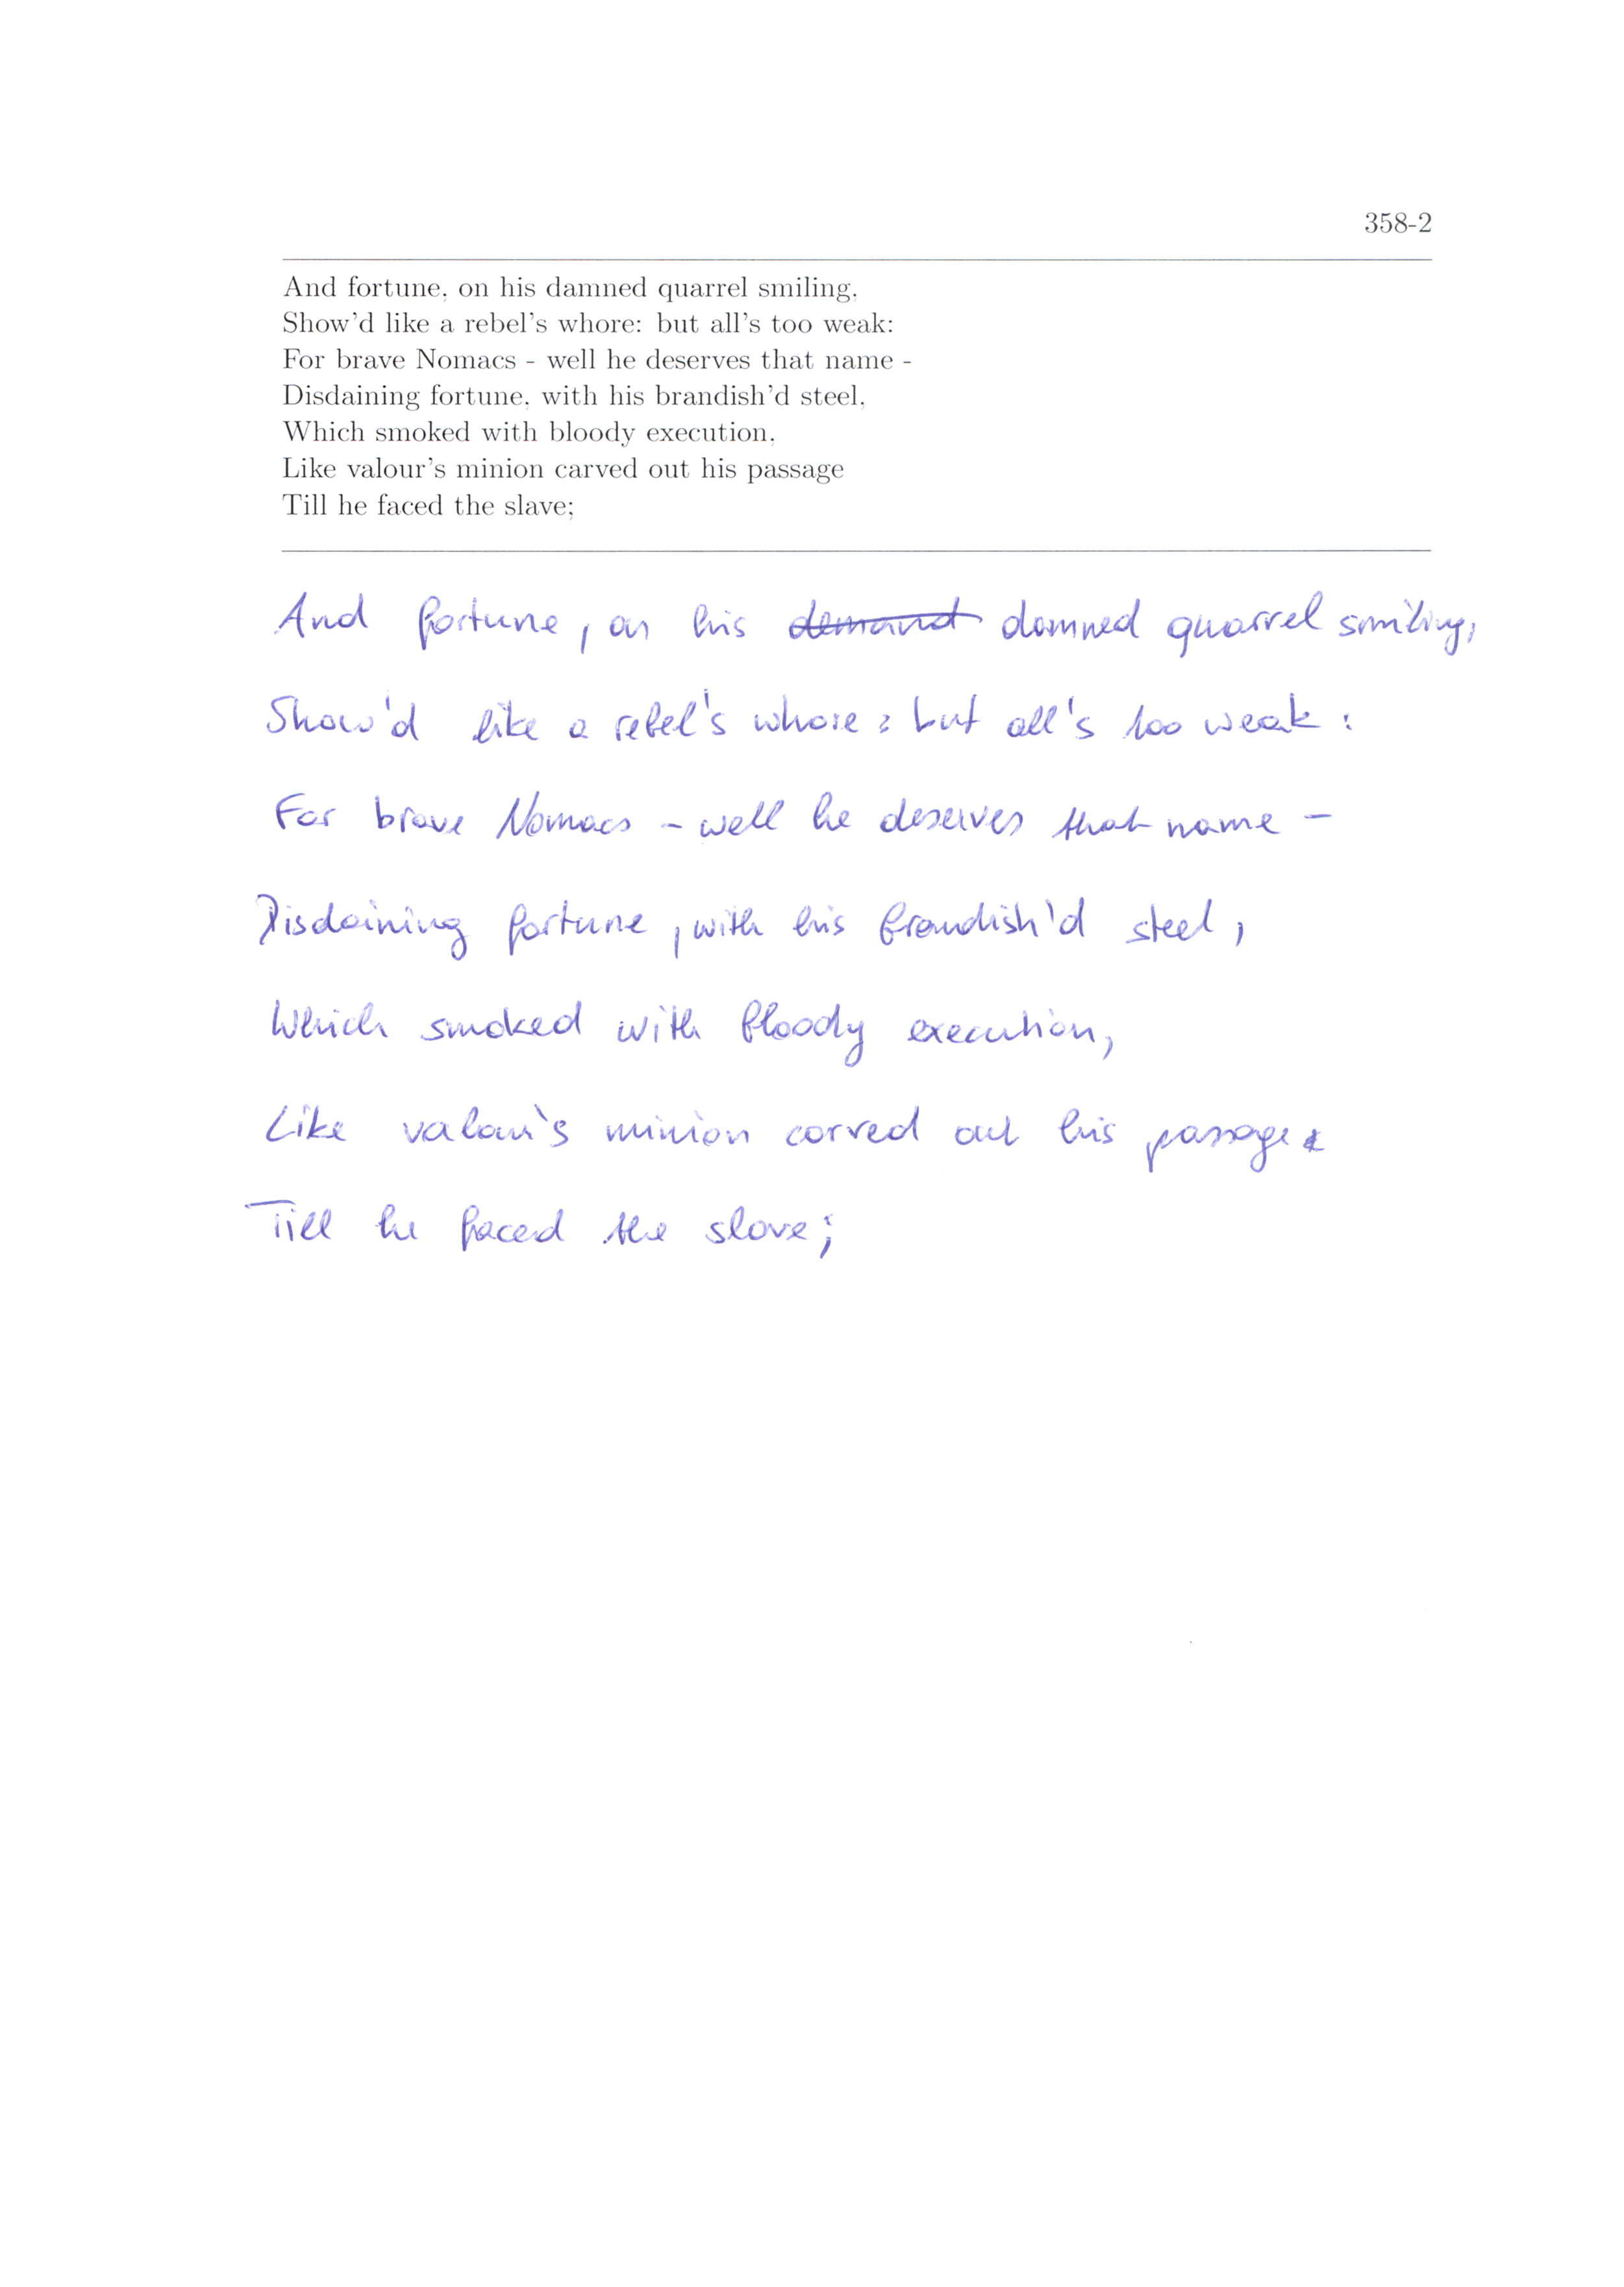 358-2
And fortune, on his damned quarrel smiling,
Show'd like a rebel's whore: but all's too weak:
For brave Nomacs - well he deserves that name -
Disdaining fortune, with his brandish'd steel,
Which smoked with bloody execution,
Like valour's minion carved out his passage
Till he faced the slave;
And fortune, on his demand damned quarrel smiling,
Show'd like a rebel's whore: but all's too weak:
For brave Nomacs - well he deserves that name -
Disdaining fortune, with his brandish'd steel,
Which smoked with bloody execution,
Like valour's minion carved out his passage
Till he faced the slave;